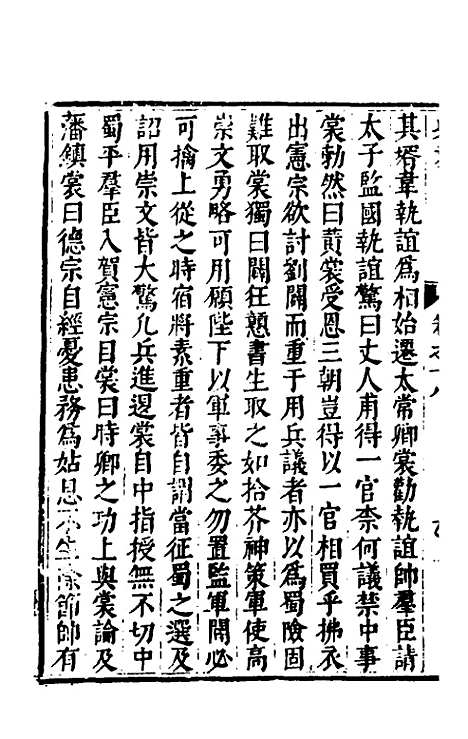 其壻韋執誼爲相始遷太常卿裳勸執誼帥羣臣請
太子監國執誼驚曰丈人甫得一官柰何議禁中事
裳勃然曰黃裳受恩三朝豈得以一官相買乎拂衣
出憲宗欲討劉闢而重于用兵議者亦以爲蜀險固
難取裳獨曰闢狂戇書生取之如拾芥神策軍使高
崇文勇略可用願陛下以軍事委之勿置監軍闢必
可擒上從之時宿將素重者皆自謂當征蜀之選及
詔用崇文皆大驚凡兵進退裳自中指授無不切中
蜀平羣臣入賀憲宗目裳曰時卿之功上與裳論及
藩鎮裳曰德宗自經憂患務爲姑息不生除節帥有